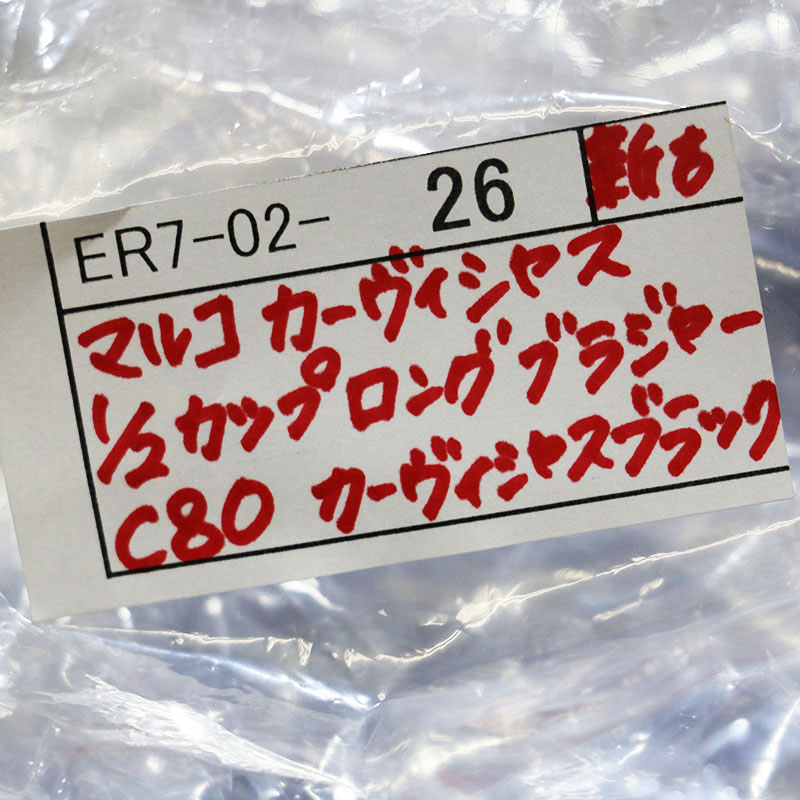 ER7-02- 26 新古
マルコ カーヴィシャス
1/2カップ ロング ブラジャー
C80 カーヴィシャスブラック